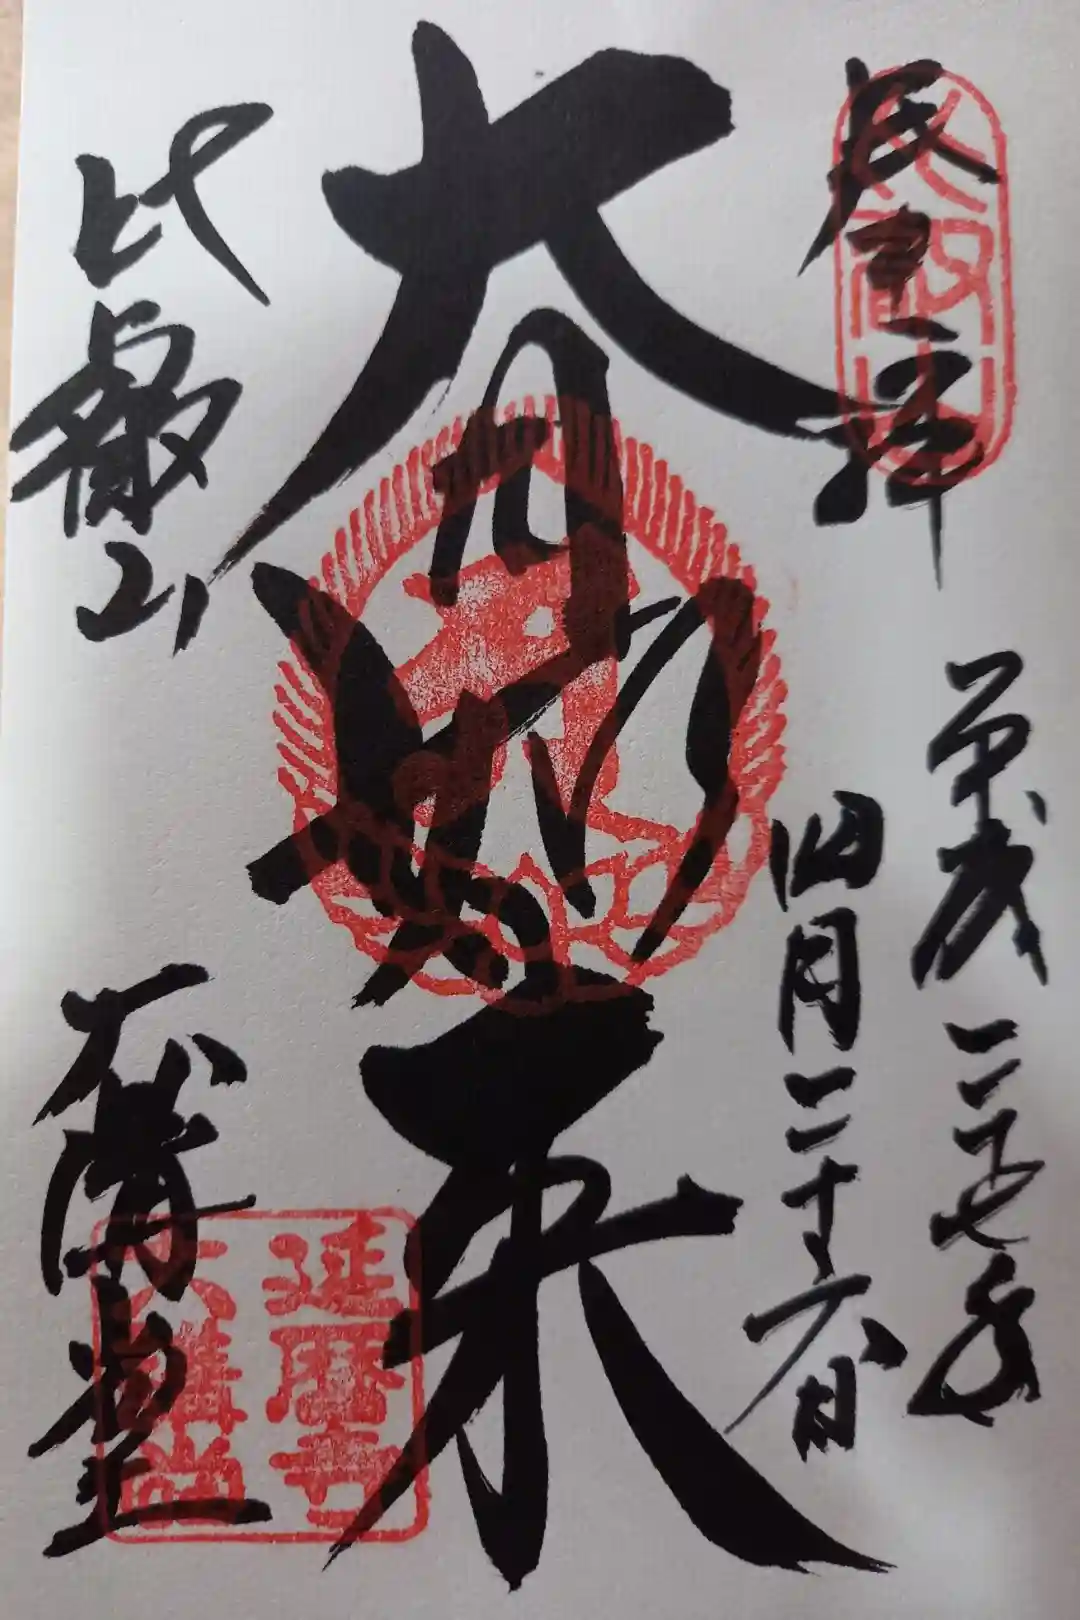 比叡山
平成二十七年
四月二十六日
大日如来
比叡山
大講堂
延暦寺
大講堂